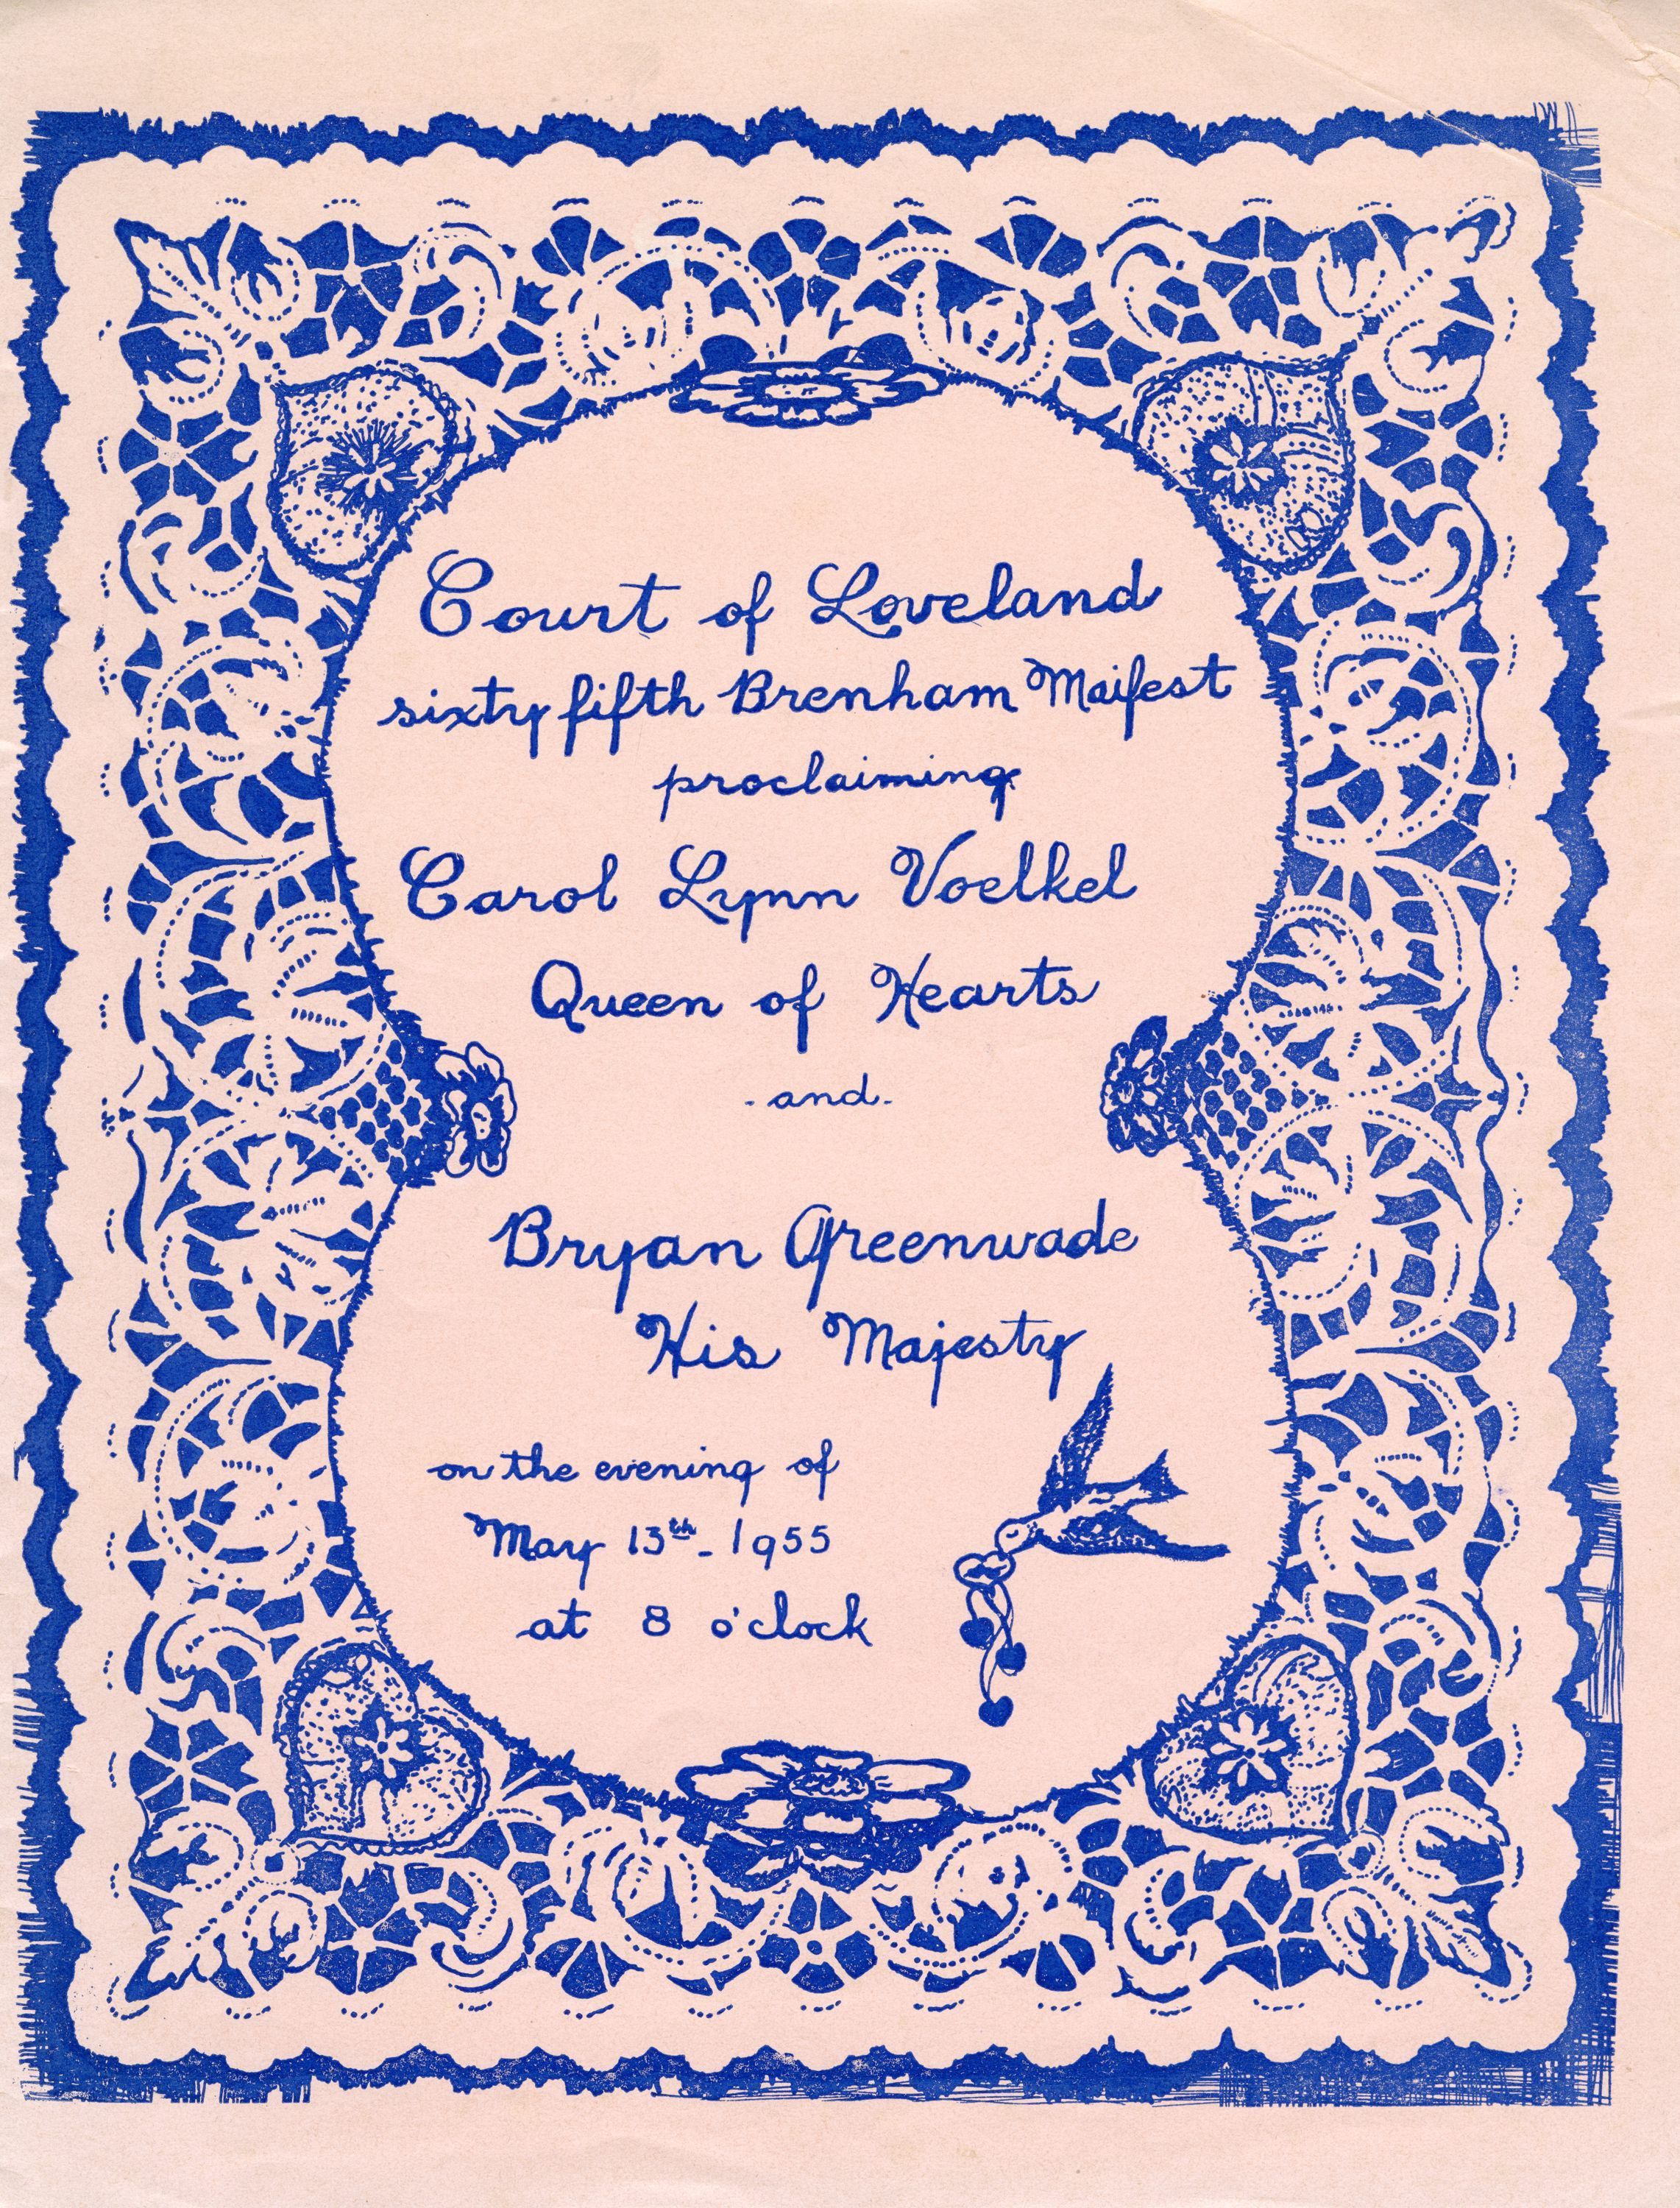 Court of Loveland
sixty fifth Brenham Maifest
proclaiming
Carol Lynn Voelkel
Queen of Hearts
- and -
Bryan Greenwade
His Majesty
on the evening of
May 13th - 1955
at 8 o'clock